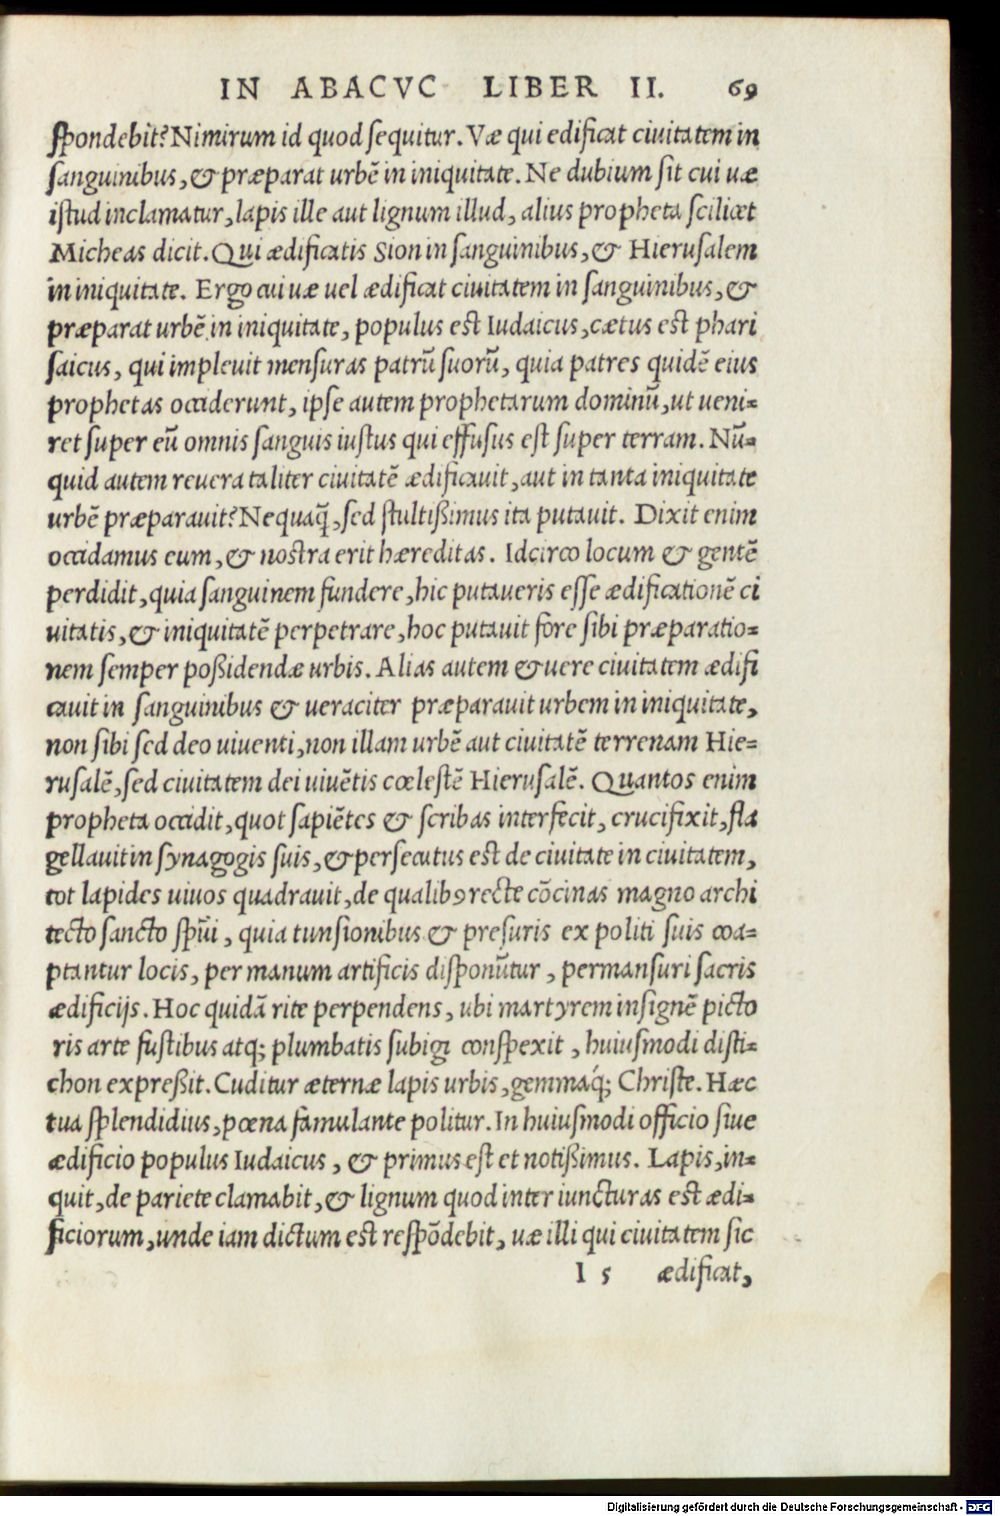 IN ABACVC LIBER II. 69
spondebit? Nimirum id quod sequitur. Væ qui edificat ciuitatem in
sanguinibus, & præparat urbẽ in iniquitate. Ne dubium sit cui uæ
istud inclamatur, lapis ille aut lignum illud, alius propheta scilicet
Micheas dicit. Qui ædificatis Sion in sanguinibus, & Hierusalem
in iniquitate. Ergo cui uæ uel ædificat ciuitatem in sanguinibus, &
præparat urbẽ in iniquitate, populus est Iudaicus, cætus est phari
saicus, qui impleuit mensuras patrũ suorũ, quia patres quidẽ eius
prophetas occiderunt, ipse autem prophetarum dominũ, ut ueni-
ret super eũ omnis sanguis iustus qui effusus est super terram. Nũ-
quid autem reuera taliter ciuitatẽ ædificauit, aut in tanta iniquitate
urbẽ præparauit? Nequaq̃, sed stultißimus ita putauit. Dixit enim
occidamus eum, & nostra erit hæreditas. Idcirco locum & gentẽ
perdidit, quia sanguinem fundere, hic putaueris esse ædificationẽ ci
uitatis, & iniquitatẽ perpetrare, hoc putauit fore sibi præparatio-
nem semper poßidendæ urbis. Alias autem & uere ciuitatem ædifi
cauit in sanguinibus & ueraciter præparauit urbem in iniquitate,
non sibi sed deo uiuenti, non illam urbẽ aut ciuitatẽ terrenam Hie-
rusalẽ, sed ciuitatem dei uiuẽtis cœlestẽ Hierusalẽ. Quantos enim
propheta occidit, quot sapiẽtes & scribas interfecit, crucifixit, fla
gellauit in synagogis suis, & persecutus est de ciuitate in ciuitatem,
tot lapides uiuos quadrauit, de qualibꝰ recte cõcinas magno archi
tecto sancto spũi, quia tunsionibus & presuris ex politi suis coa-
ptantur locis, per manum artificis disponũtur, permansuri sacris
ædificijs. Hoc quidã rite perpendens, ubi martyrem insignẽ picto
ris arte fustibus atq; plumbatis subigi conspexit, huiusmodi disti-
chon expreßit. Cuditur æternæ lapis urbis, gemmáq; Christe. Hæc
tua splendidius, pœna famulante politur. In huiusmodi officio siue
ædificio populus Iudaicus, & primus est et notißimus. Lapis, in-
quit, de pariete clamabit, & lignum quod inter iuncturas est ædi-
ficiorum, unde iam dictum est respõdebit, uæ illi qui ciuitatem sic
I 5 ædificat,
Digitalisierung gefördert durch die Deutsche Forschungsgemeinschaft - DFG